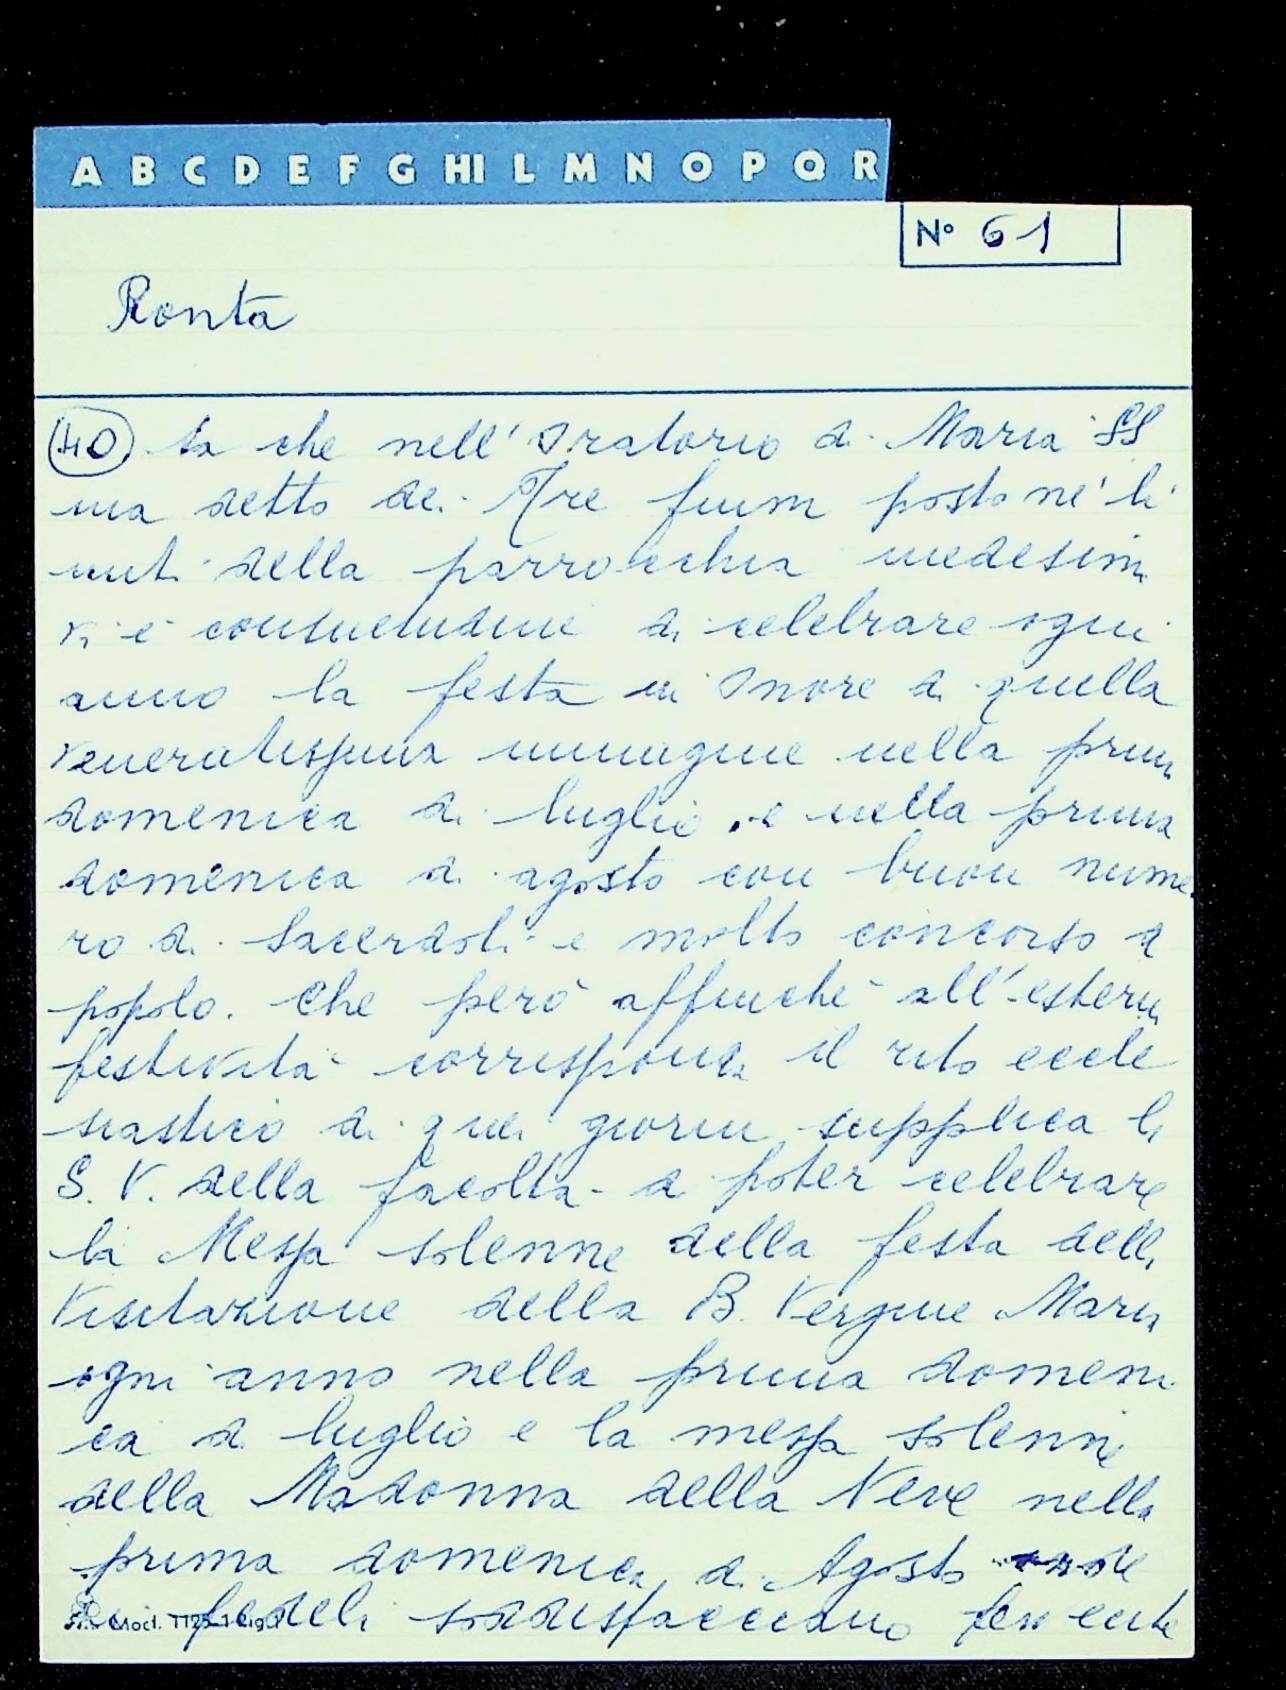 A B C D E F G HI L M N O P Q R
N° 61
Ronta
40 ta che nell' Oratorio di Maria SS
ma detto dei Tre fiumi posto ne' li
miti della parrocchia medesima
vi è consuetudine di celebrare ogni
anno la festa in onore di quella
veneratissima immagine nella prima
domenica di luglio, e nella prima
domenica di agosto con buon nume
ro di Sacerdoti e molto concorso di
popolo. Che però affinchè all'esterna
festività corrisponda il rito eccle
siastico di quei giorni supplica la
S. V. della facoltà di poter celebrare
la Messa solenne della festa della
Visitazione della B. Vergine Maria
ogni anno nella prima domeni
ca di luglio e la messa solenne
della Madonna della Neve nella
prima domenica di Agosto onde
fedeli soddisfacciano